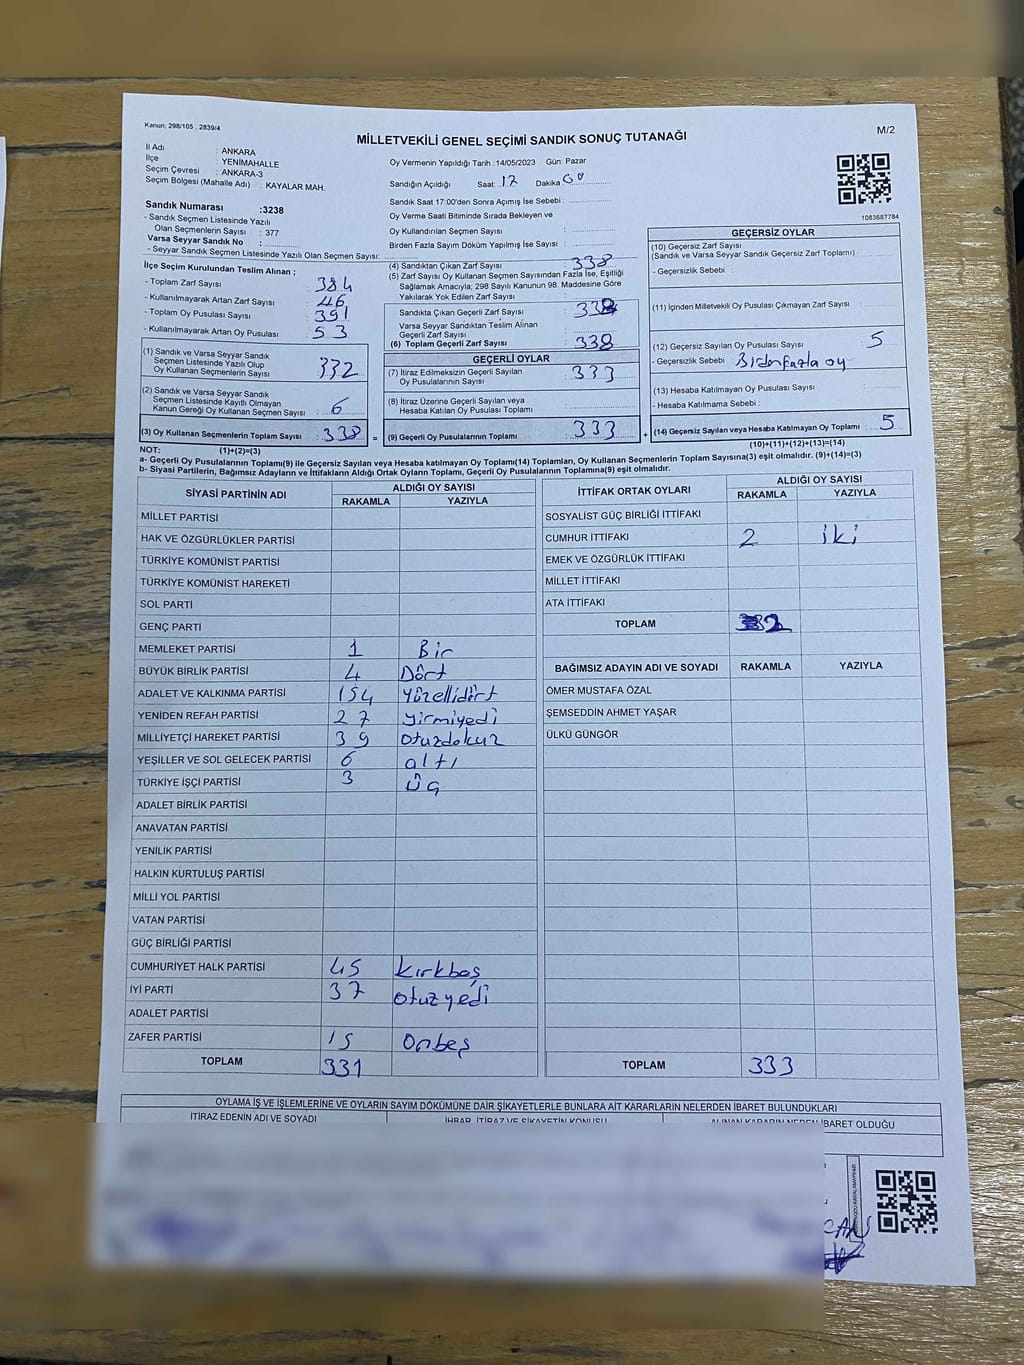 Kanun: 298/105 , 2839/4
MİLLETVEKİLİ GENEL SEÇİMİ SANDIK SONUÇ TUTANAĞI
M/2
İl Adı : ANKARA
İlçe : YENİMAHALLE
Seçim Çevresi : ANKARA-3
Seçim Bölgesi (Mahalle Adı) : KAYALAR MAH.
Sandık Numarası :3238
- Sandık Seçmen Listesinde Yazılı
Olan Seçmenlerin Sayısı : 377
Varsa Seyyar Sandık No :
- Seyyar Sandık Seçmen Listesinde Yazılı Olan Seçmen Sayısı:
Oy Vermenin Yapıldığı Tarih :14/05/2023 Gün: Pazar
Sandığın Açıldığı Saat: 17 Dakika 00
Sandık Saat 17:00'den Sonra Açımış İse Sebebi :
Oy Verme Saati Bitiminde Sırada Bekleyen ve
Oy Kullandırılan Seçmen Sayısı :
Birden Fazla Sayım Döküm Yapılmış İse Sayısı :
1083687784
İlçe Seçim Kurulundan Teslim Alınan ;
- Toplam Zarf Sayısı : 384
- Kullanılmayarak Artan Zarf Sayısı : 46
- Toplam Oy Pusulası Sayısı : 391
- Kullanılmayarak Artan Oy Pusulası : 53
(1) Sandık ve Varsa Seyyar Sandık
Seçmen Listesinde Yazılı Olup
Oy Kullanan Seçmenlerin Sayısı : 332
(2) Sandık ve Varsa Seyyar Sandık
Seçmen Listesinde Kayıtlı Olmayan
Kanun Gereği Oy Kullanan Seçmen Sayısı : 6
(3) Oy Kullanan Seçmenlerin Toplam Sayısı : 338
(4) Sandıktan Çıkan Zarf Sayısı : 338
(5) Zarf Sayısı Oy Kullanan Seçmen Sayısından Fazla İse, Eşitliği
Sağlamak Amacıyla; 298 Sayılı Kanunun 98. Maddesine Göre
Yakılarak Yok Edilen Zarf Sayısı :
Sandıkta Çıkan Geçerli Zarf Sayısı : 338
Varsa Seyyar Sandıktan Teslim Alınan
Geçerli Zarf Sayısı :
(6) Toplam Geçerli Zarf Sayısı : 338
GEÇERLİ OYLAR
(7) İtiraz Edilmeksizin Geçerli Sayılan
Oy Pusulalarının Sayısı : 333
(8) İtiraz Üzerine Geçerli Sayılan veya
Hesaba Katılan Oy Pusulası Toplamı :
= (9) Geçerli Oy Pusulalarının Toplamı : 333
GEÇERSİZ OYLAR
(10) Geçersiz Zarf Sayısı
(Sandık ve Varsa Seyyar Sandık Geçersiz Zarf Toplamı) :
- Geçersizlik Sebebi :
(11) İçinden Milletvekili Oy Pusulası Çıkmayan Zarf Sayısı :
(12) Geçersiz Sayılan Oy Pusulası Sayısı : 5
- Geçersizlik Sebebi : Birden fazla oy
(13) Hesaba Katılmayan Oy Pusulası Sayısı :
- Hesaba Katılmama Sebebi :
+ (14) Geçersiz Sayılan veya Hesaba Katılmayan Oy Toplamı : 5
NOT: (1)+(2)=(3)
(10)+(11)+(12)+(13)=(14)
a- Geçerli Oy Pusulalarının Toplamı(9) ile Geçersiz Sayılan veya Hesaba katılmayan Oy Toplamı(14) Toplamları, Oy Kullanan Seçmenlerin Toplam Sayısına(3) eşit olmalıdır. (9)+(14)=(3)
b- Siyasi Partilerin, Bağımsız Adayların ve İttifakların Aldığı Ortak Oyların Toplamı, Geçerli Oy Pusulalarının Toplamına(9) eşit olmalıdır.
SİYASİ PARTİNİN ADI ALDIĞI OY SAYISI
RAKAMLA YAZIYLA
MİLLET PARTİSİ
HAK VE ÖZGÜRLÜKLER PARTİSİ
TÜRKİYE KOMÜNİST PARTİSİ
TÜRKİYE KOMÜNİST HAREKETİ
SOL PARTİ
GENÇ PARTİ
MEMLEKET PARTİSİ 1 Bir
BÜYÜK BİRLİK PARTİSİ 4 Dört
ADALET VE KALKINMA PARTİSİ 154 Yüzellidört
YENİDEN REFAH PARTİSİ 27 yirmiyedi
MİLLİYETÇİ HAREKET PARTİSİ 39 otuzdokuz
YEŞİLLER VE SOL GELECEK PARTİSİ 6 altı
TÜRKİYE İŞÇİ PARTİSİ 3 üç
ADALET BİRLİK PARTİSİ
ANAVATAN PARTİSİ
YENİLİK PARTİSİ
HALKIN KURTULUŞ PARTİSİ
MİLLİ YOL PARTİSİ
VATAN PARTİSİ
GÜÇ BİRLİĞİ PARTİSİ
CUMHURİYET HALK PARTİSİ 45 kırkbeş
İYİ PARTİ 37 otuzyedi
ADALET PARTİSİ
ZAFER PARTİSİ 15 Onbeş
TOPLAM 331
İTTİFAK ORTAK OYLARI ALDIĞI OY SAYISI
RAKAMLA YAZIYLA
SOSYALİST GÜÇ BİRLİĞİ İTTİFAKI
CUMHUR İTTİFAKI 2 iki
EMEK VE ÖZGÜRLÜK İTTİFAKI
MİLLET İTTİFAKI
ATA İTTİFAKI
TOPLAM 2
BAĞIMSIZ ADAYIN ADI VE SOYADI RAKAMLA YAZIYLA
ÖMER MUSTAFA ÖZAL
ŞEMSEDDİN AHMET YAŞAR
ÜLKÜ GÜNGÖR
TOPLAM 333
OYLAMA İŞ VE İŞLEMLERİNE VE OYLARIN SAYIM DÖKÜMÜNE DAİR ŞİKAYETLERLE BUNLARA AİT KARARLARIN NELERDEN İBARET BULUNDUKLARI
İTİRAZ EDENİN ADI VE SOYADI İHBAR, İTİRAZ VE ŞİKAYETİN KONUSU ALINAN KARARIN NEDEN İBARET OLDUĞU